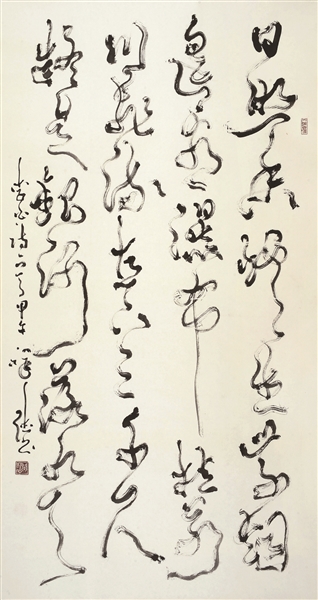 日照香爐生紫烟
遥看瀑布挂前
川飛流直下三千尺
疑是銀河落九天
李白詩一首甲午